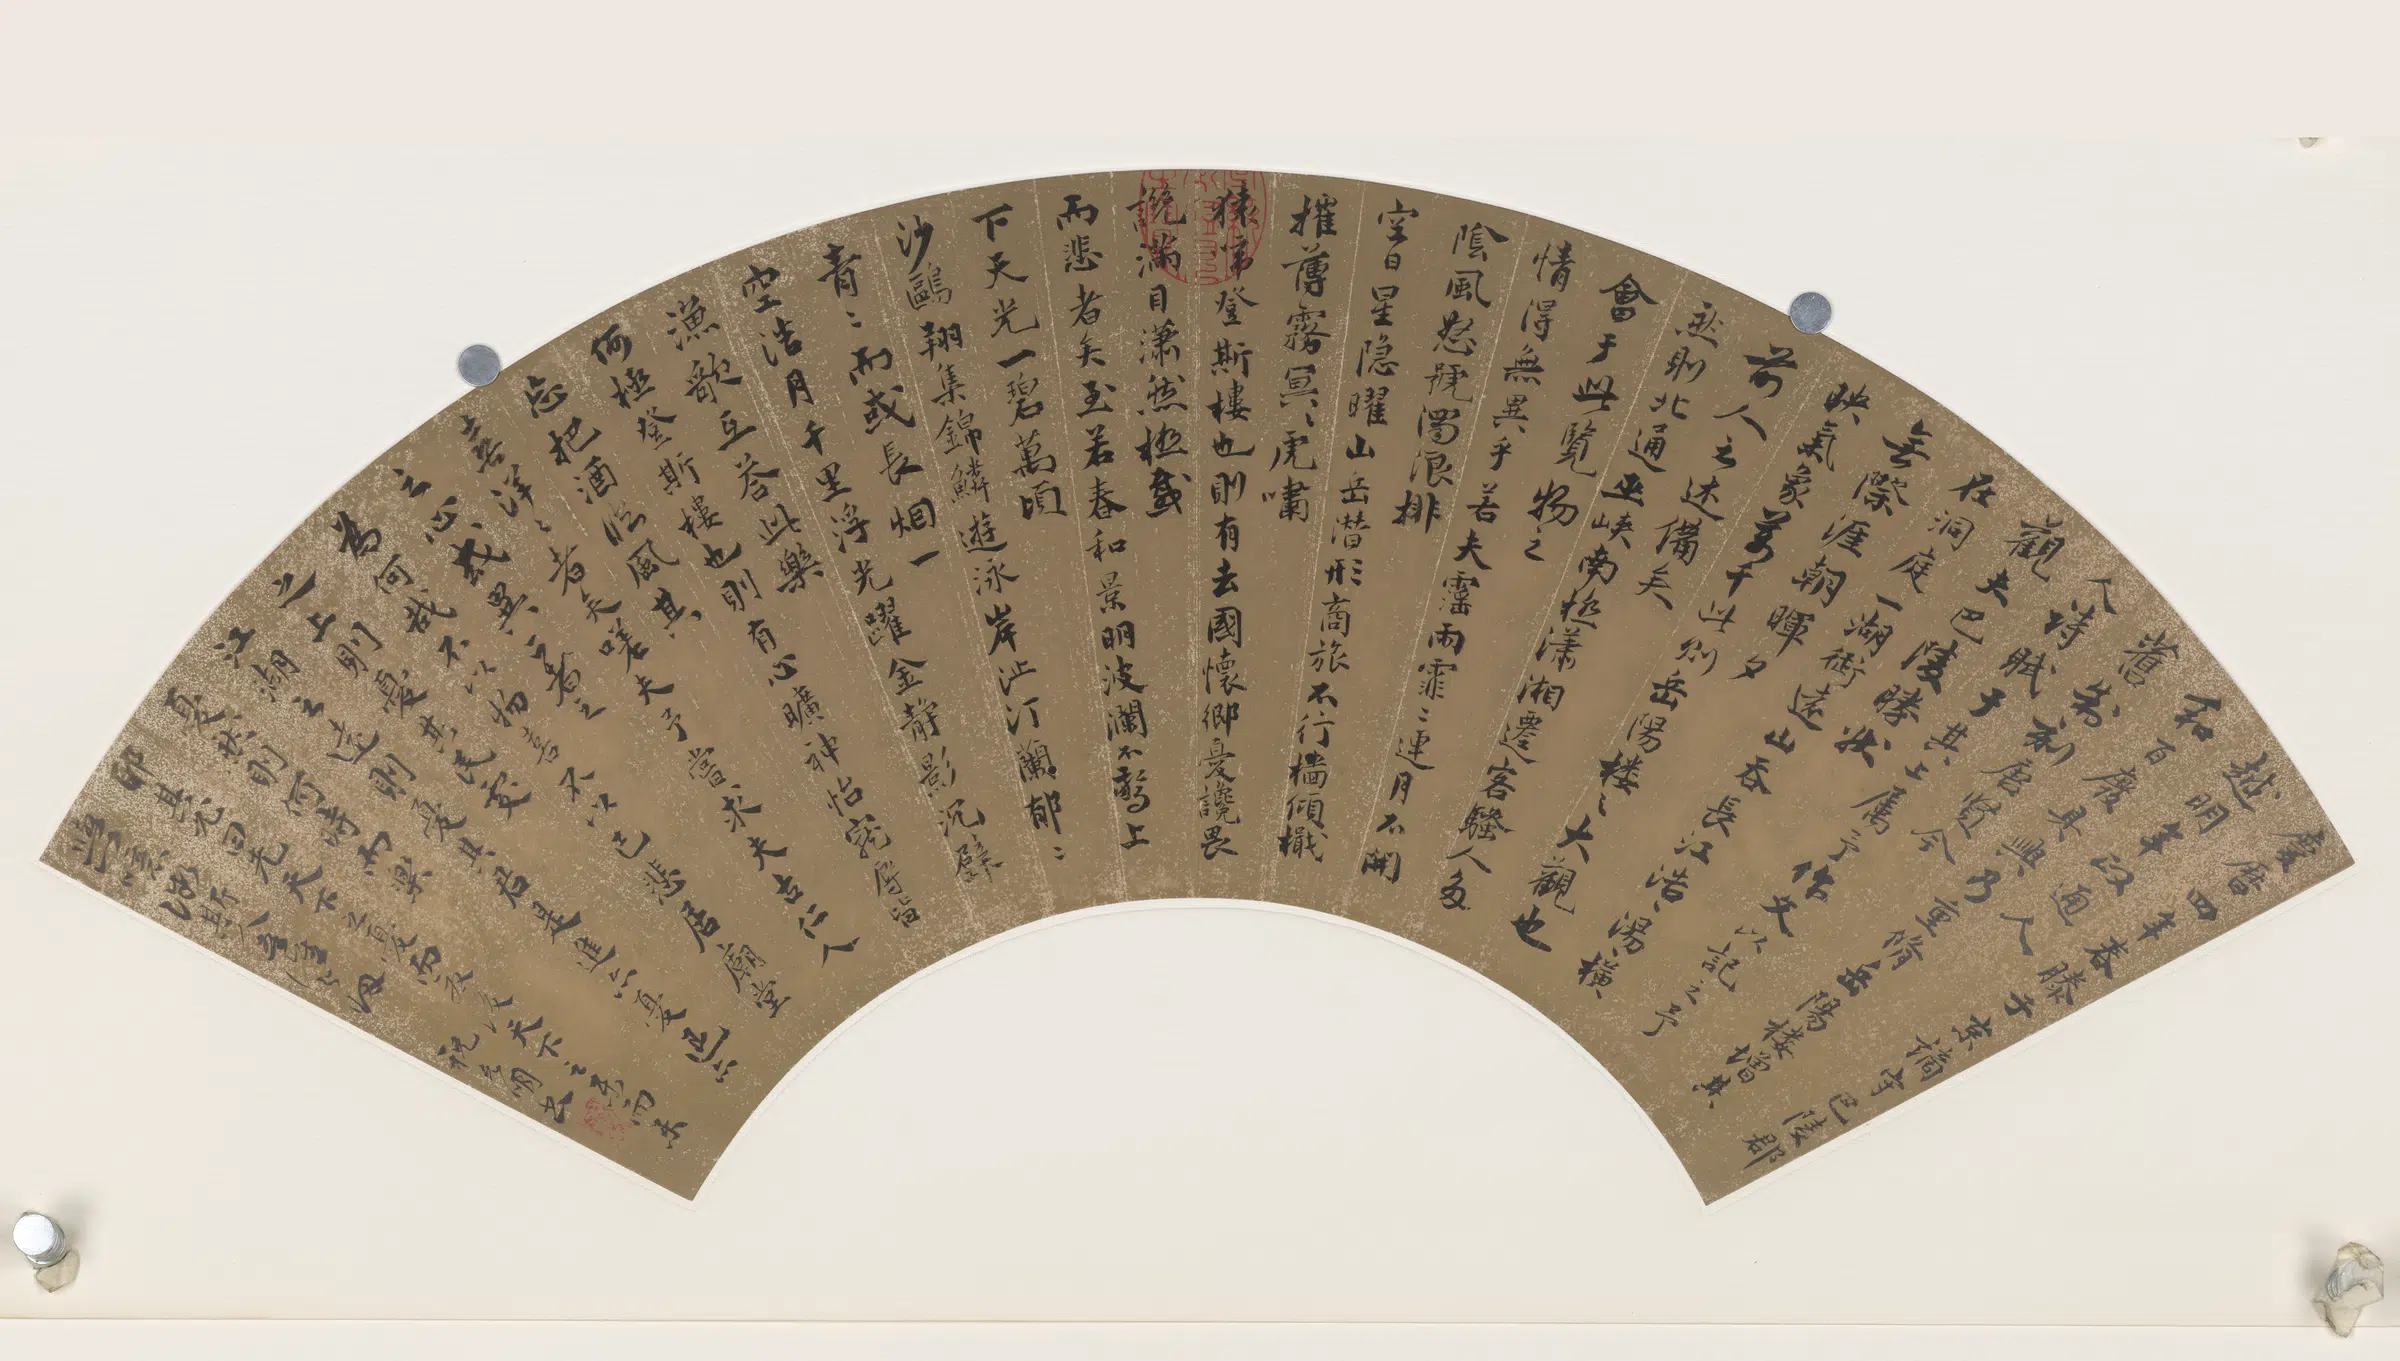 慶曆四年春滕子京謫守巴陵郡
越明年政通人
和百廢具興乃重脩岳陽樓增其
舊制刻唐賢今
人詩賦于其上属予作文以記之予
觀夫巴陵勝狀
在洞庭一湖銜遠山吞長江浩、湯、橫
無際涯朝暉夕
映氣象萬千此則岳陽楼、大觀也
前人之述備矣
然則北通巫峽南極瀟湘遷客騷人多
會于此覽物之
情得無異乎若夫霪雨霏、連月不開
陰風怒號濁浪排
空日星隐曜山岳潜形商旅不行檣傾檝
摧薄霧冥、虎嘯
猿啼登斯樓也則有去國懷鄉憂讒畏
譏滿目瀟然極感
而悲者矣至若春和景明波瀾不驚上
下天光一碧萬頃
沙鷗翔集錦鱗遊泳岸芷汀蘭郁、
青、而或長烟一
空浩月千里浮光躍金靜影沉璧
漁歌互荅此樂
何極登斯樓也則有心曠神怡寵辱皆
忘把酒臨風其
喜洋、者矣嗟夫予嘗求夫古仁人
之心或異二者之
為何哉不以物喜不以己悲居廟堂
之上則憂其民處
江湖之遠則憂其君是進亦憂退亦
憂然則何時而樂
邪其必曰先天下之憂而憂後天下之樂而樂
噫微斯人吾誰與歸
祝允明書